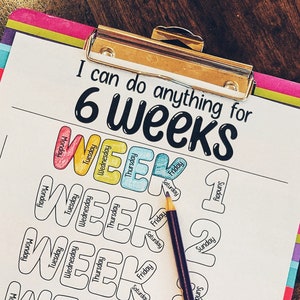 I can do anything for
6 WEEKS
WEEK 1
Monday Tuesday Wednesday Thursday Friday Saturday Sunday
WEEK 2
Monday Tuesday Wednesday Thursday Friday Saturday Sunday
WEEK
Monday Tuesday Wednesday Thursday Friday Saturday
WEEK